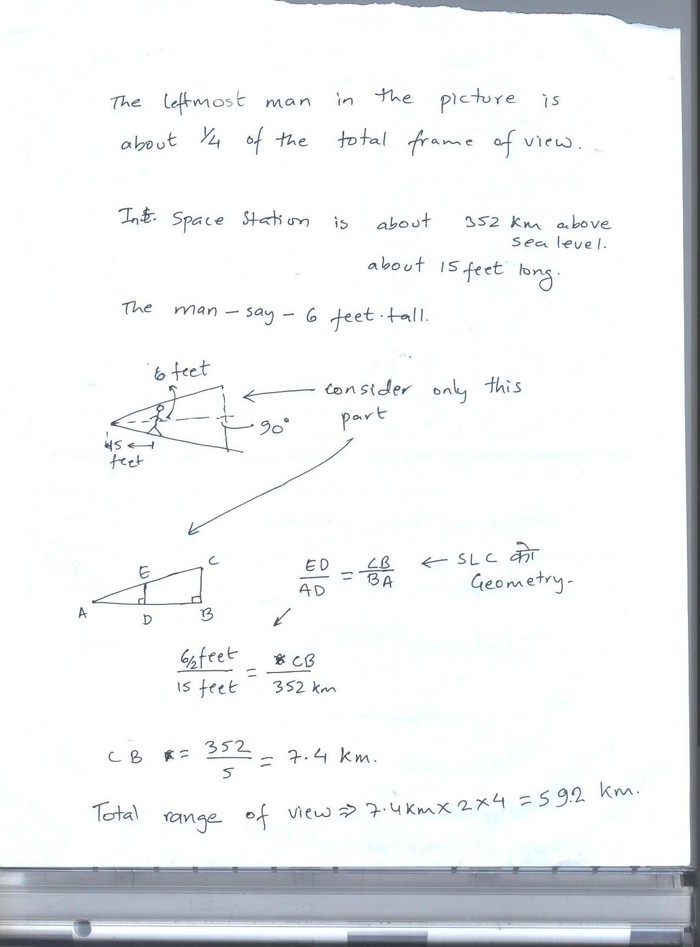 The leftmost man in the picture is
about 1/4 of the total frame of view.
Int. Space Station is about 352 km above
sea level.
about 15 feet long.
The man - say - 6 feet tall.
6 feet
consider only this
part
90°
15
feet
E
C
A
D
B
ED/AD = CB/BA ← SLC को
Geometry.
6/2 feet/15 feet = CB/352 km
CB = 352/5 = 7.4 km.
Total range of view ⇒ 7.4km×2×4 = 59.2 km.